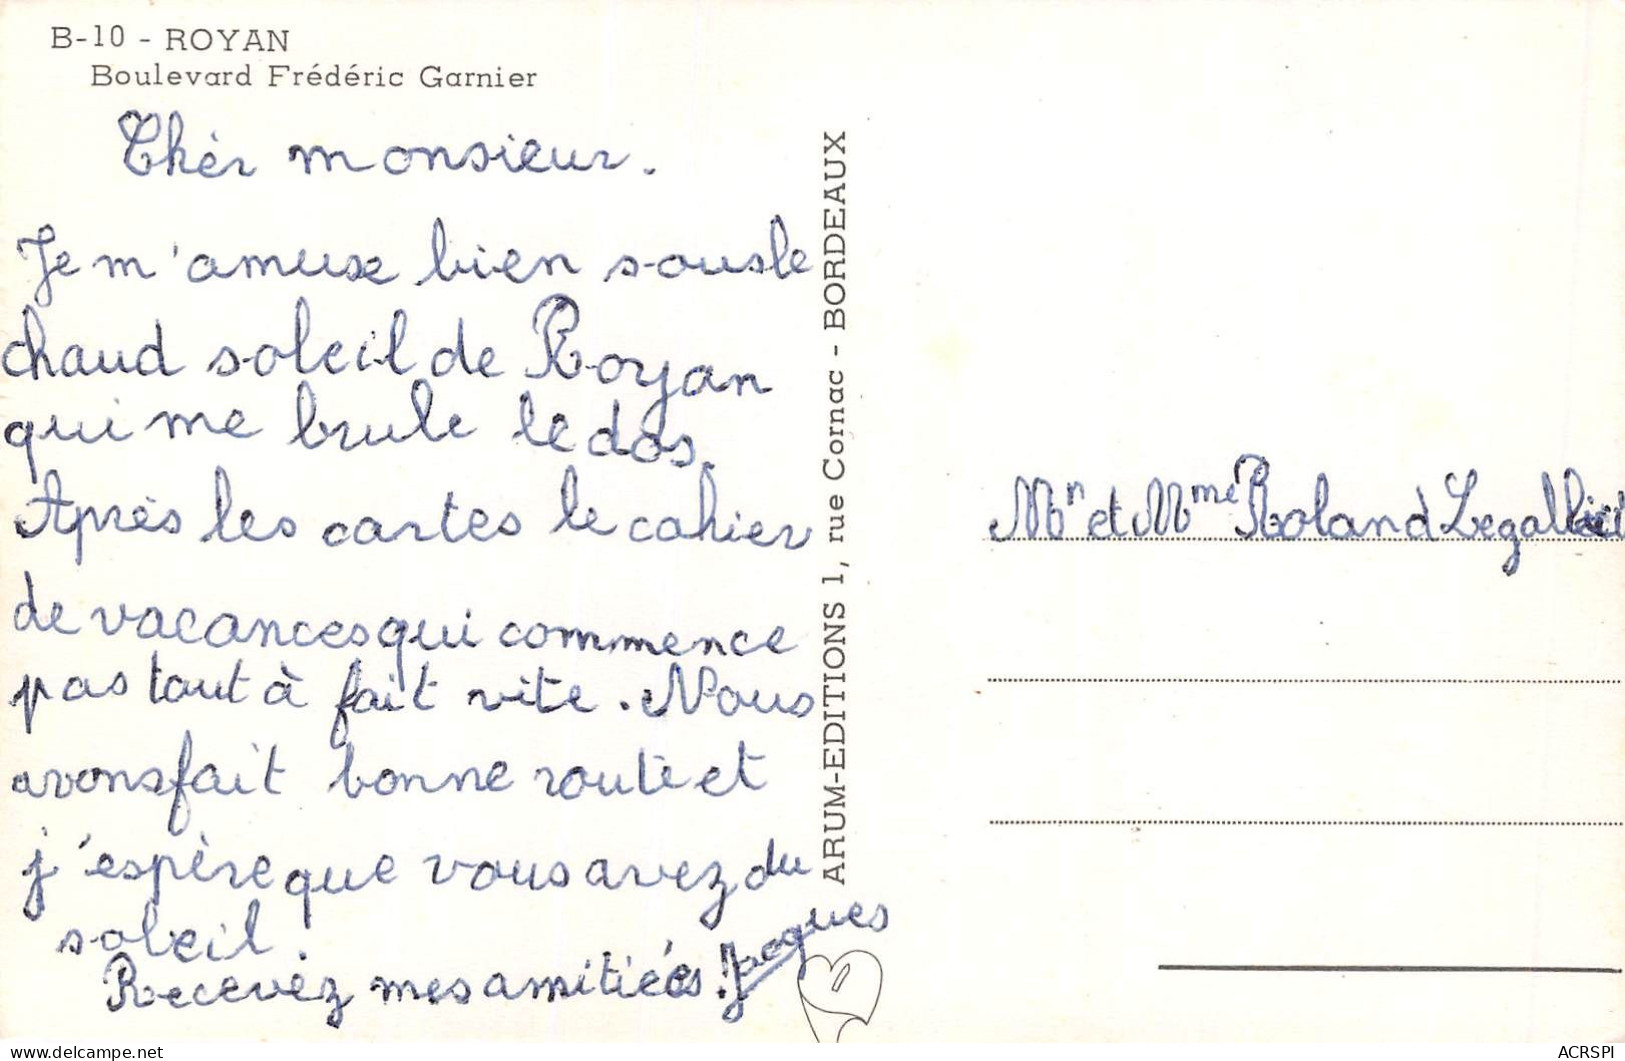 B-10 - ROYAN
Boulevard Frédéric Garnier
Chèr monsieur.
Je m'amuse bien sous le
chaud soleil de Royan
qui me brule le dos.
Après les cartes le cahier
de vacances qui commence
pas tout à fait vite. Nous
avons fait bonne route et
j'espère que vous avez du
soleil.
Recevez mes amitiés. Jacques
ARUM-EDITIONS 1, rue Cornac - BORDEAUX
Mr et Mme Roland
ACRSPI